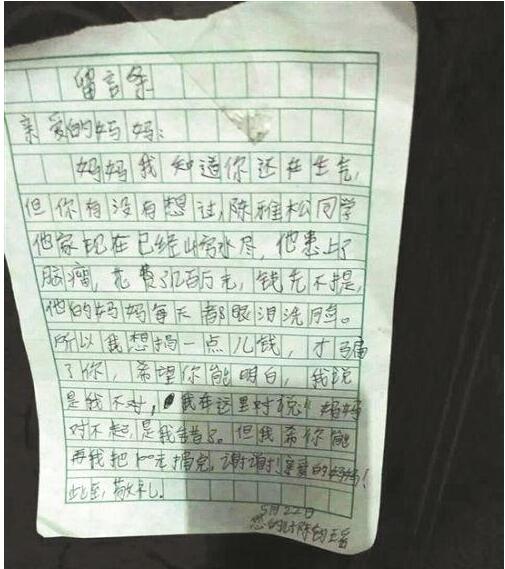 留言条
亲爱的妈妈：
妈妈我知道你还在生气，
但你有没有想过，陈雅松同学
他家现在已经山穷水尽，他患上了
脑瘤，花费了几百万元，钱先不提，
他的妈妈每天都眼泪洗脸。
所以我想捐一点儿钱，才骗
了你，希望你能明白，我说
是我不对，我在这里对说！妈妈
对不起，是我错了。但我希你能
再我把100元捐完，谢谢！亲爱的妈妈！
此至，敬礼。
5月22日
您的 陈